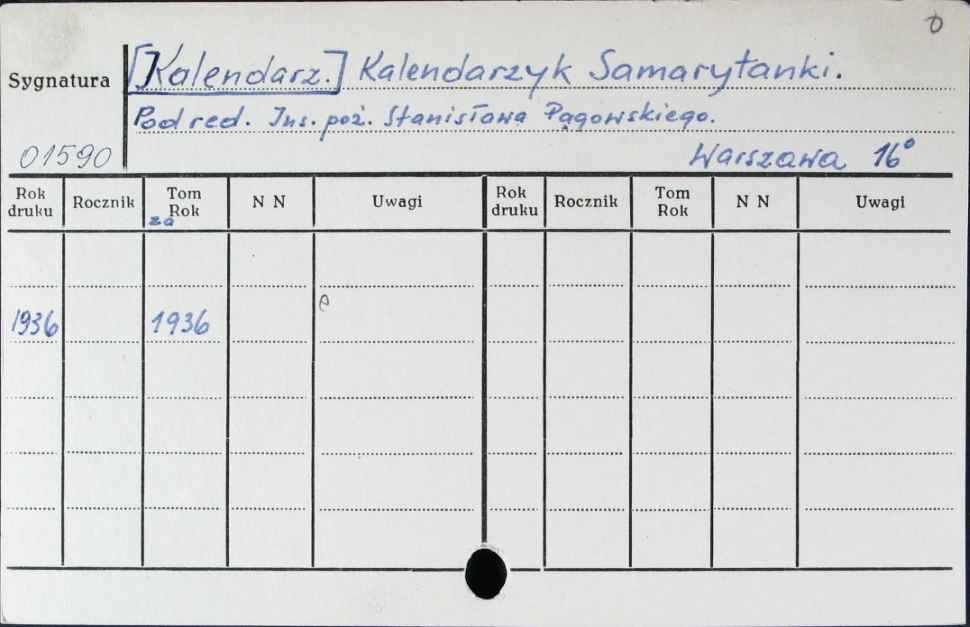 Sygnatura
[Kalendarz.] Kalendarzyk Samarytanki.
Pod red. Ins. poż. Stanisława Pągowskiego.
01590
Warszawa 16°
Rok druku Rocznik Tom za Rok N N Uwagi Rok druku Rocznik Tom Rok N N Uwagi
1936 1936